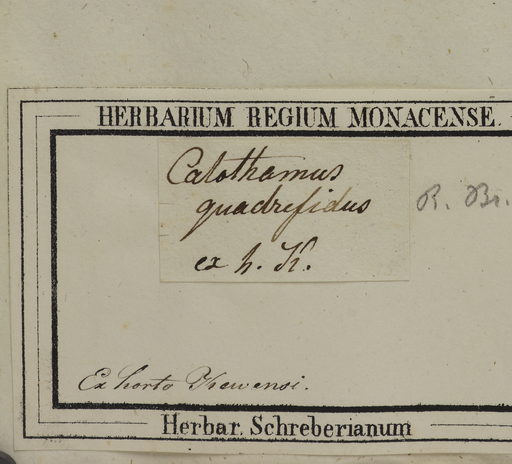 HERBARIUM REGIUM MONACENSE.
Calothamus
quadrifidus
R. Br.
ex h. K.
Ex horto Kewensi.
Herbar. Schreberianum